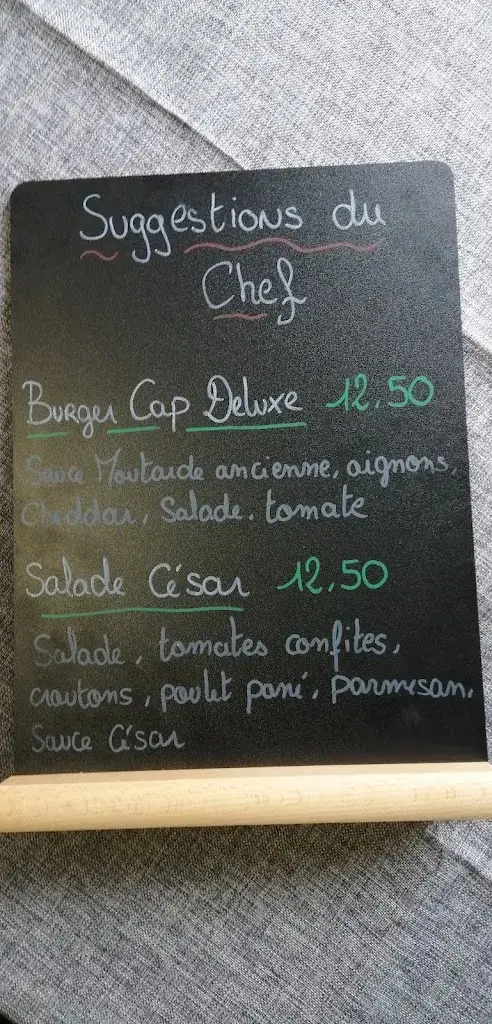 Suggestions du
Chef
Burger Cap Deluxe 12.50
Sauce Moutarde ancienne, oignons,
Cheddar, Salade, tomate
Salade César 12,50
Salade, tomates confites,
croutons, poulet pané, parmesan,
Sauce César